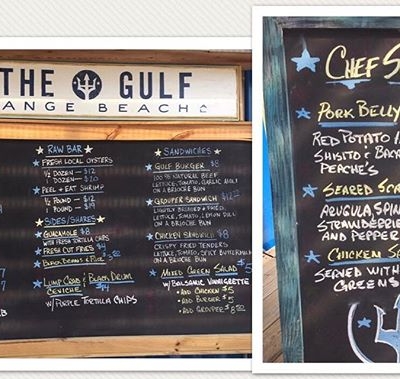 THE GULF
ANGE BEACH
RAW BAR
FRESH LOCAL OYSTERS
½ DOZEN — $12
1 DOZEN — $20
PEEL + EAT SHRIMP
½ POUND — $12
1 POUND — $19
SIDES/SHARES
GUACAMOLE $8
WITH FRESH TORTILLA CHIPS
FRESH CUT FRIES $4
BLACK BEANS & RICE
LUMP CRAB & BLACK DRUM
CEVICHE $14
W/ PURPLE TORTILLA CHIPS
SANDWICHES
GULF BURGER $8
100% NATURAL BEEF
LETTUCE, TOMATO, GARLIC AIOLI
ON A BRIOCHE BUN
GROUPER SANDWICH
LIGHTLY BREADED + FRIED,
LETTUCE, TOMATO, LEMON DILL
ON A BRIOCHE BUN
CHICKEN SANDWICH $8
CRISPY FRIED TENDERS
LETTUCE, TOMATO, SPICY BUTTERMILK
ON A BRIOCHE BUN
MIXED GREEN SALAD $5
W/ BALSAMIC VINAIGRETTE
• ADD CHICKEN $5
• ADD BURGER $5
• ADD GROUPER $8.50
CHEF S
PORK BELLY
RED POTATO
SHISITO & BAC
PEACHE'S
SEARED SCA
ARUGULA, SPIN
STRAWBERRIE
AND PEPPER
CHICKEN SA
SERVED WITH
GREENS